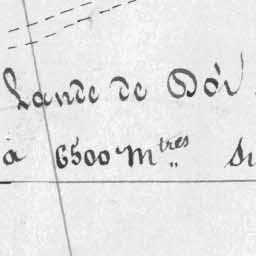 Lande de Dór
à 6500 Mtres Su